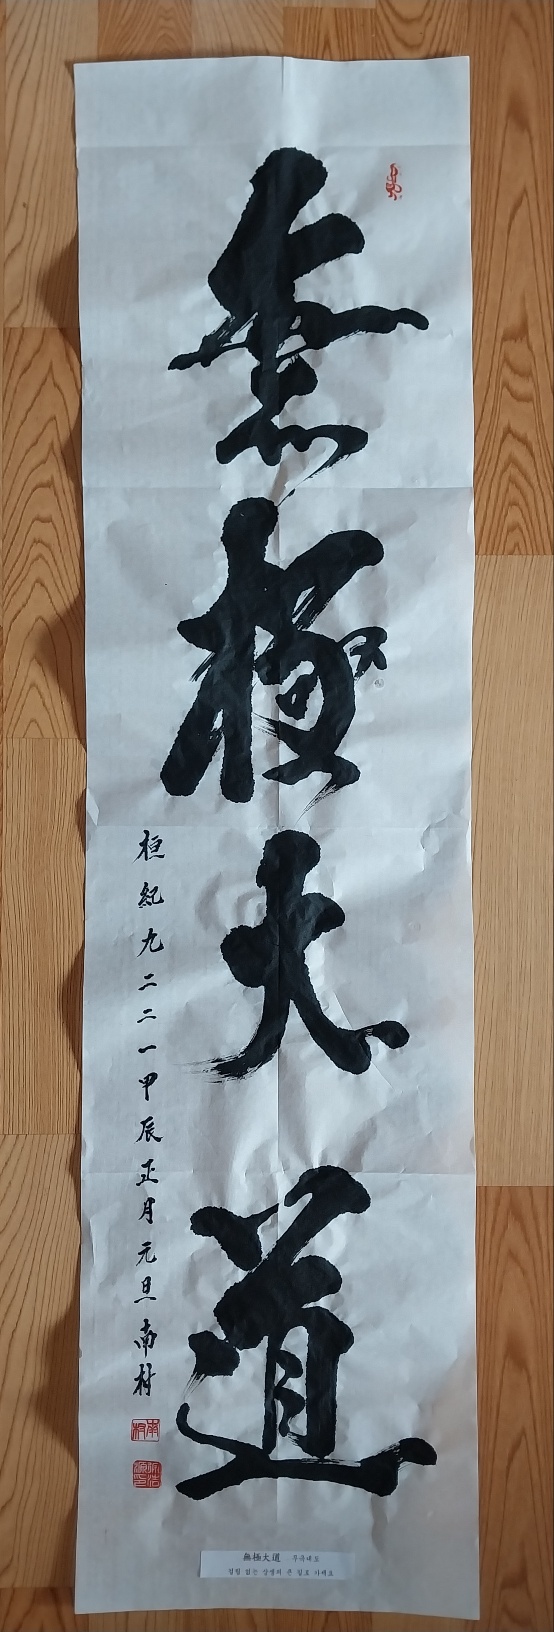 無極大道
桓紀九二二一甲辰正月元旦南村
南村
無極大道 무극대도